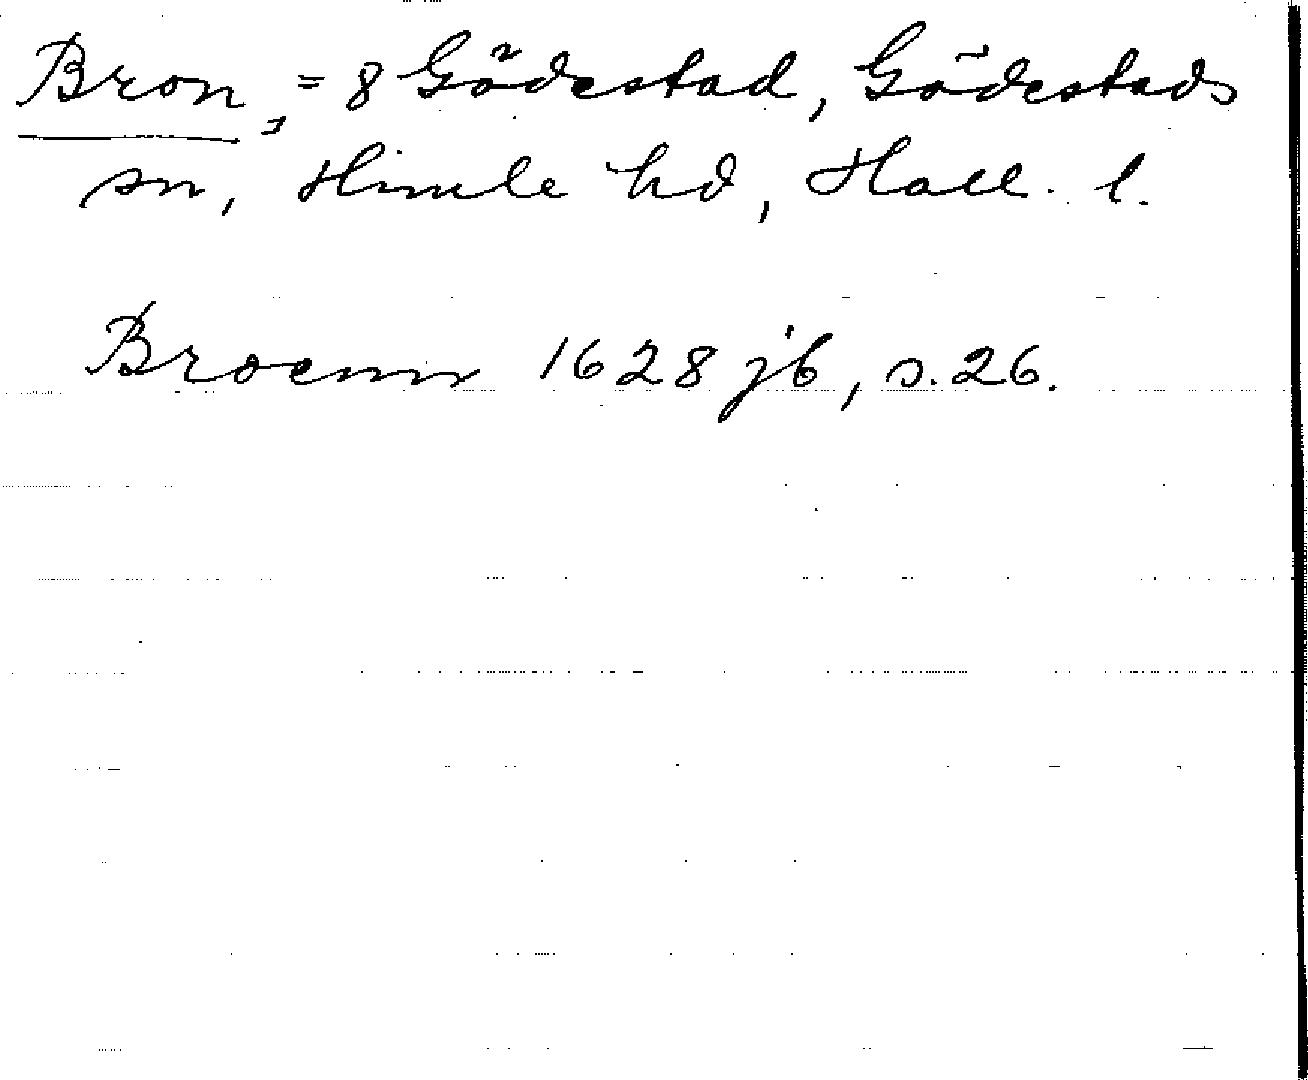 Bron, = 8 Gödestad, Gödestads
sn, Himle hd, Hall. l.
Broenn 1628 jb, s. 26.